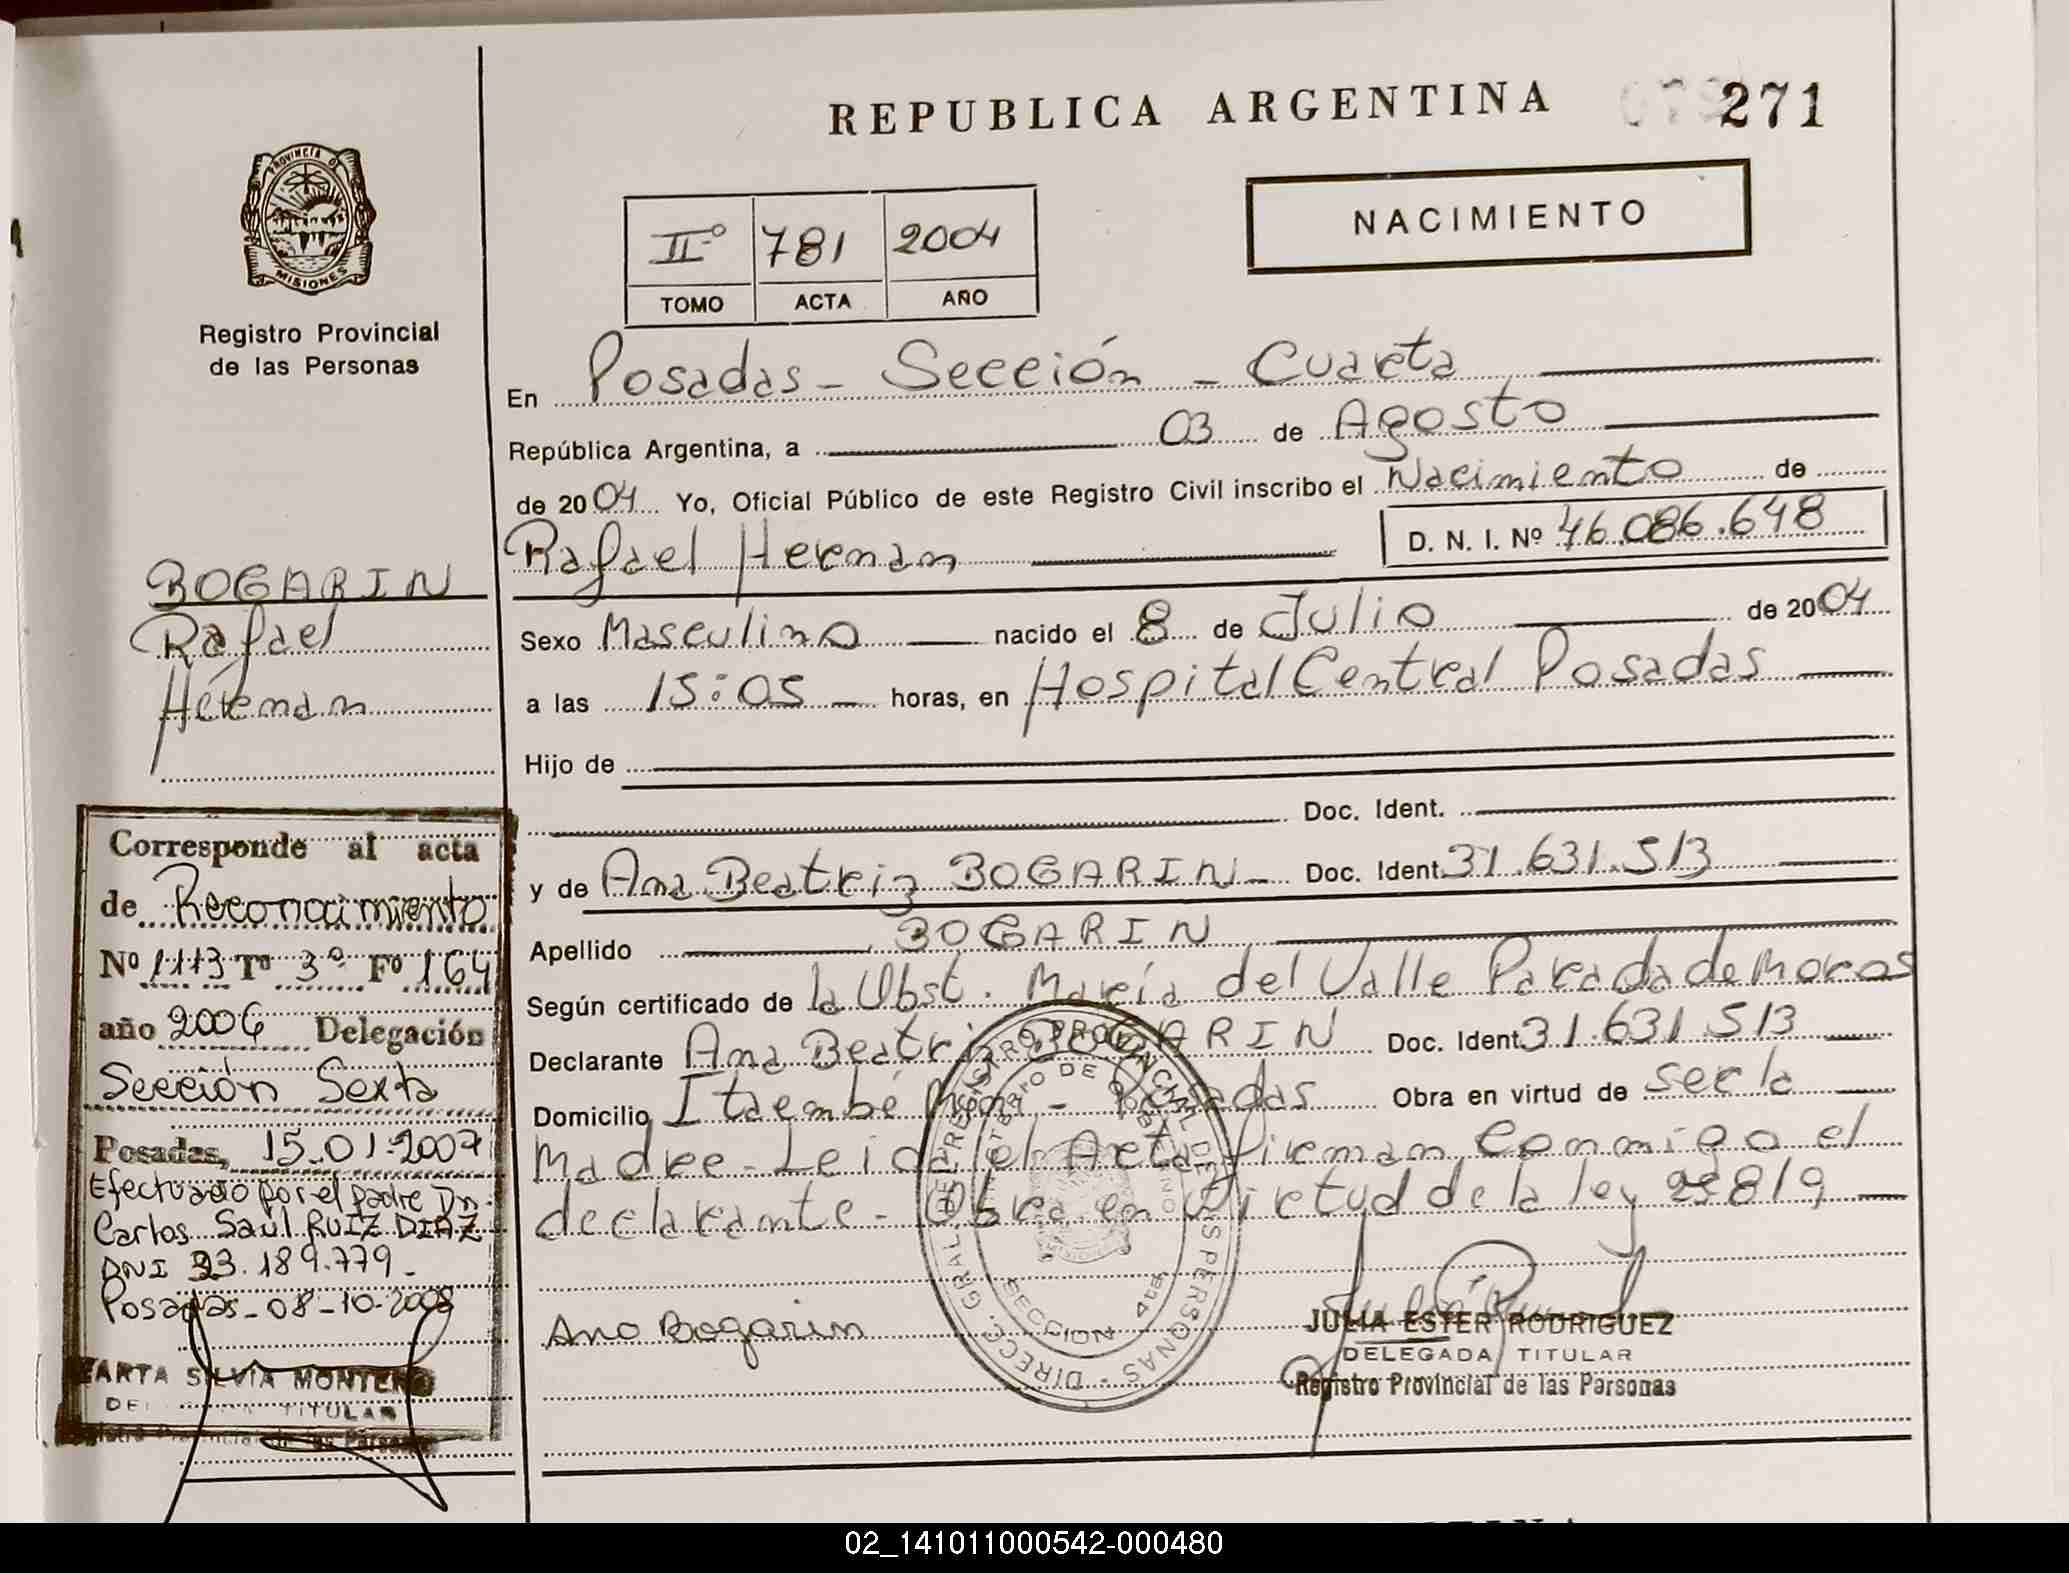 REPUBLICA ARGENTINA
271
PROVINCIA DE
MISIONES
Registro Provincial
de las Personas
NACIMIENTO
IIº 781 2004
TOMO ACTA AÑO
En Posadas - Sección - Cuarta
República Argentina, a 03 de Agosto
de 2004 Yo, Oficial Público de este Registro Civil inscribo el Nacimiento de
Rafael Hernan D. N. I. Nº 46.086.648
BOGARIN
Rafael
Hernan
Sexo Masculino nacido el 8 de Julio de 2004
a las 15:05 horas, en Hospital Central Posadas
Hijo de
Doc. Ident.
y de Ana Beatriz BOGARIN - Doc. Ident. 31.631.513
Apellido BOGARIN
Según certificado de la Obst. María del Valle Parada de Moras
Declarante Ana Beatriz BOGARIN Doc. Ident. 31.631.513
Domicilio Itaembé Miní - Posadas Obra en virtud de ser la
Madre - Leida el Acta firman conmigo el
declarante - Obra en Virtud de la ley 25819
Ana Bogarin
JULIA ESTER RODRIGUEZ
DELEGADA TITULAR
Registro Provincial de las Personas
Corresponde al acta
de Reconocimiento
Nº 1113 Tº 3º Fº 164
año 2006 Delegación
Sección Sexta
Posadas, 15.01.2007
Efectuado por el padre Dn.
Carlos Saúl RUIZ DIAZ
DNI 33.189.779
Posadas - 08-10-2008
SILVIA MONTERO
TITULAR
02_141011000542-000480